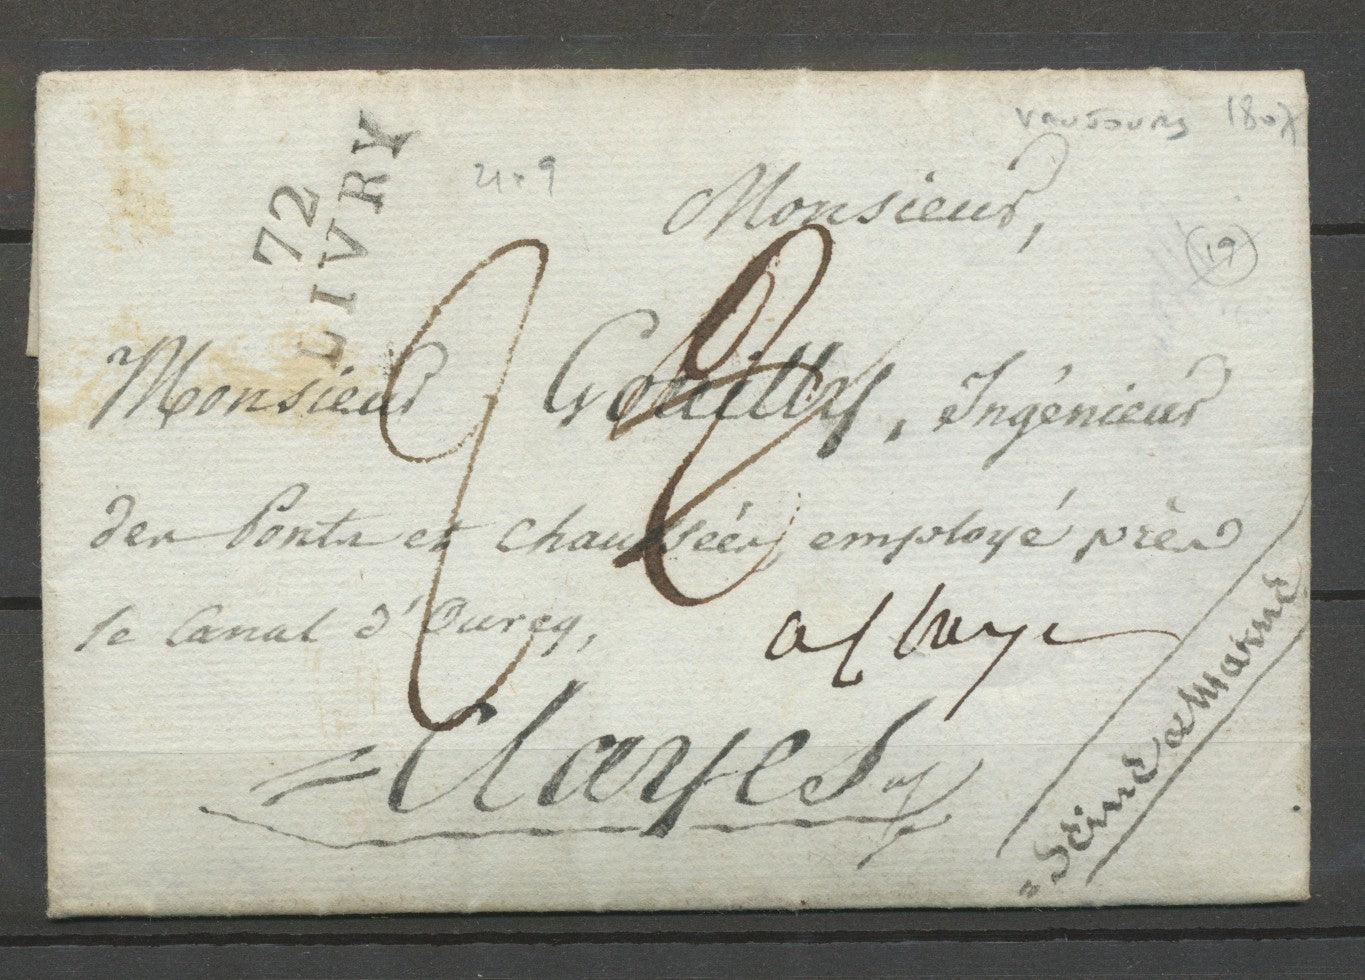 Vaujours 1807
72
LIVRY
21 x 9
19
Monsieur,
Monsieur Gouilly, Ingénieur
des Ponts et chaussées, employé près
le Canal d'Ourcq,
a Claye
= Clayes
Seine et Marne
2
2